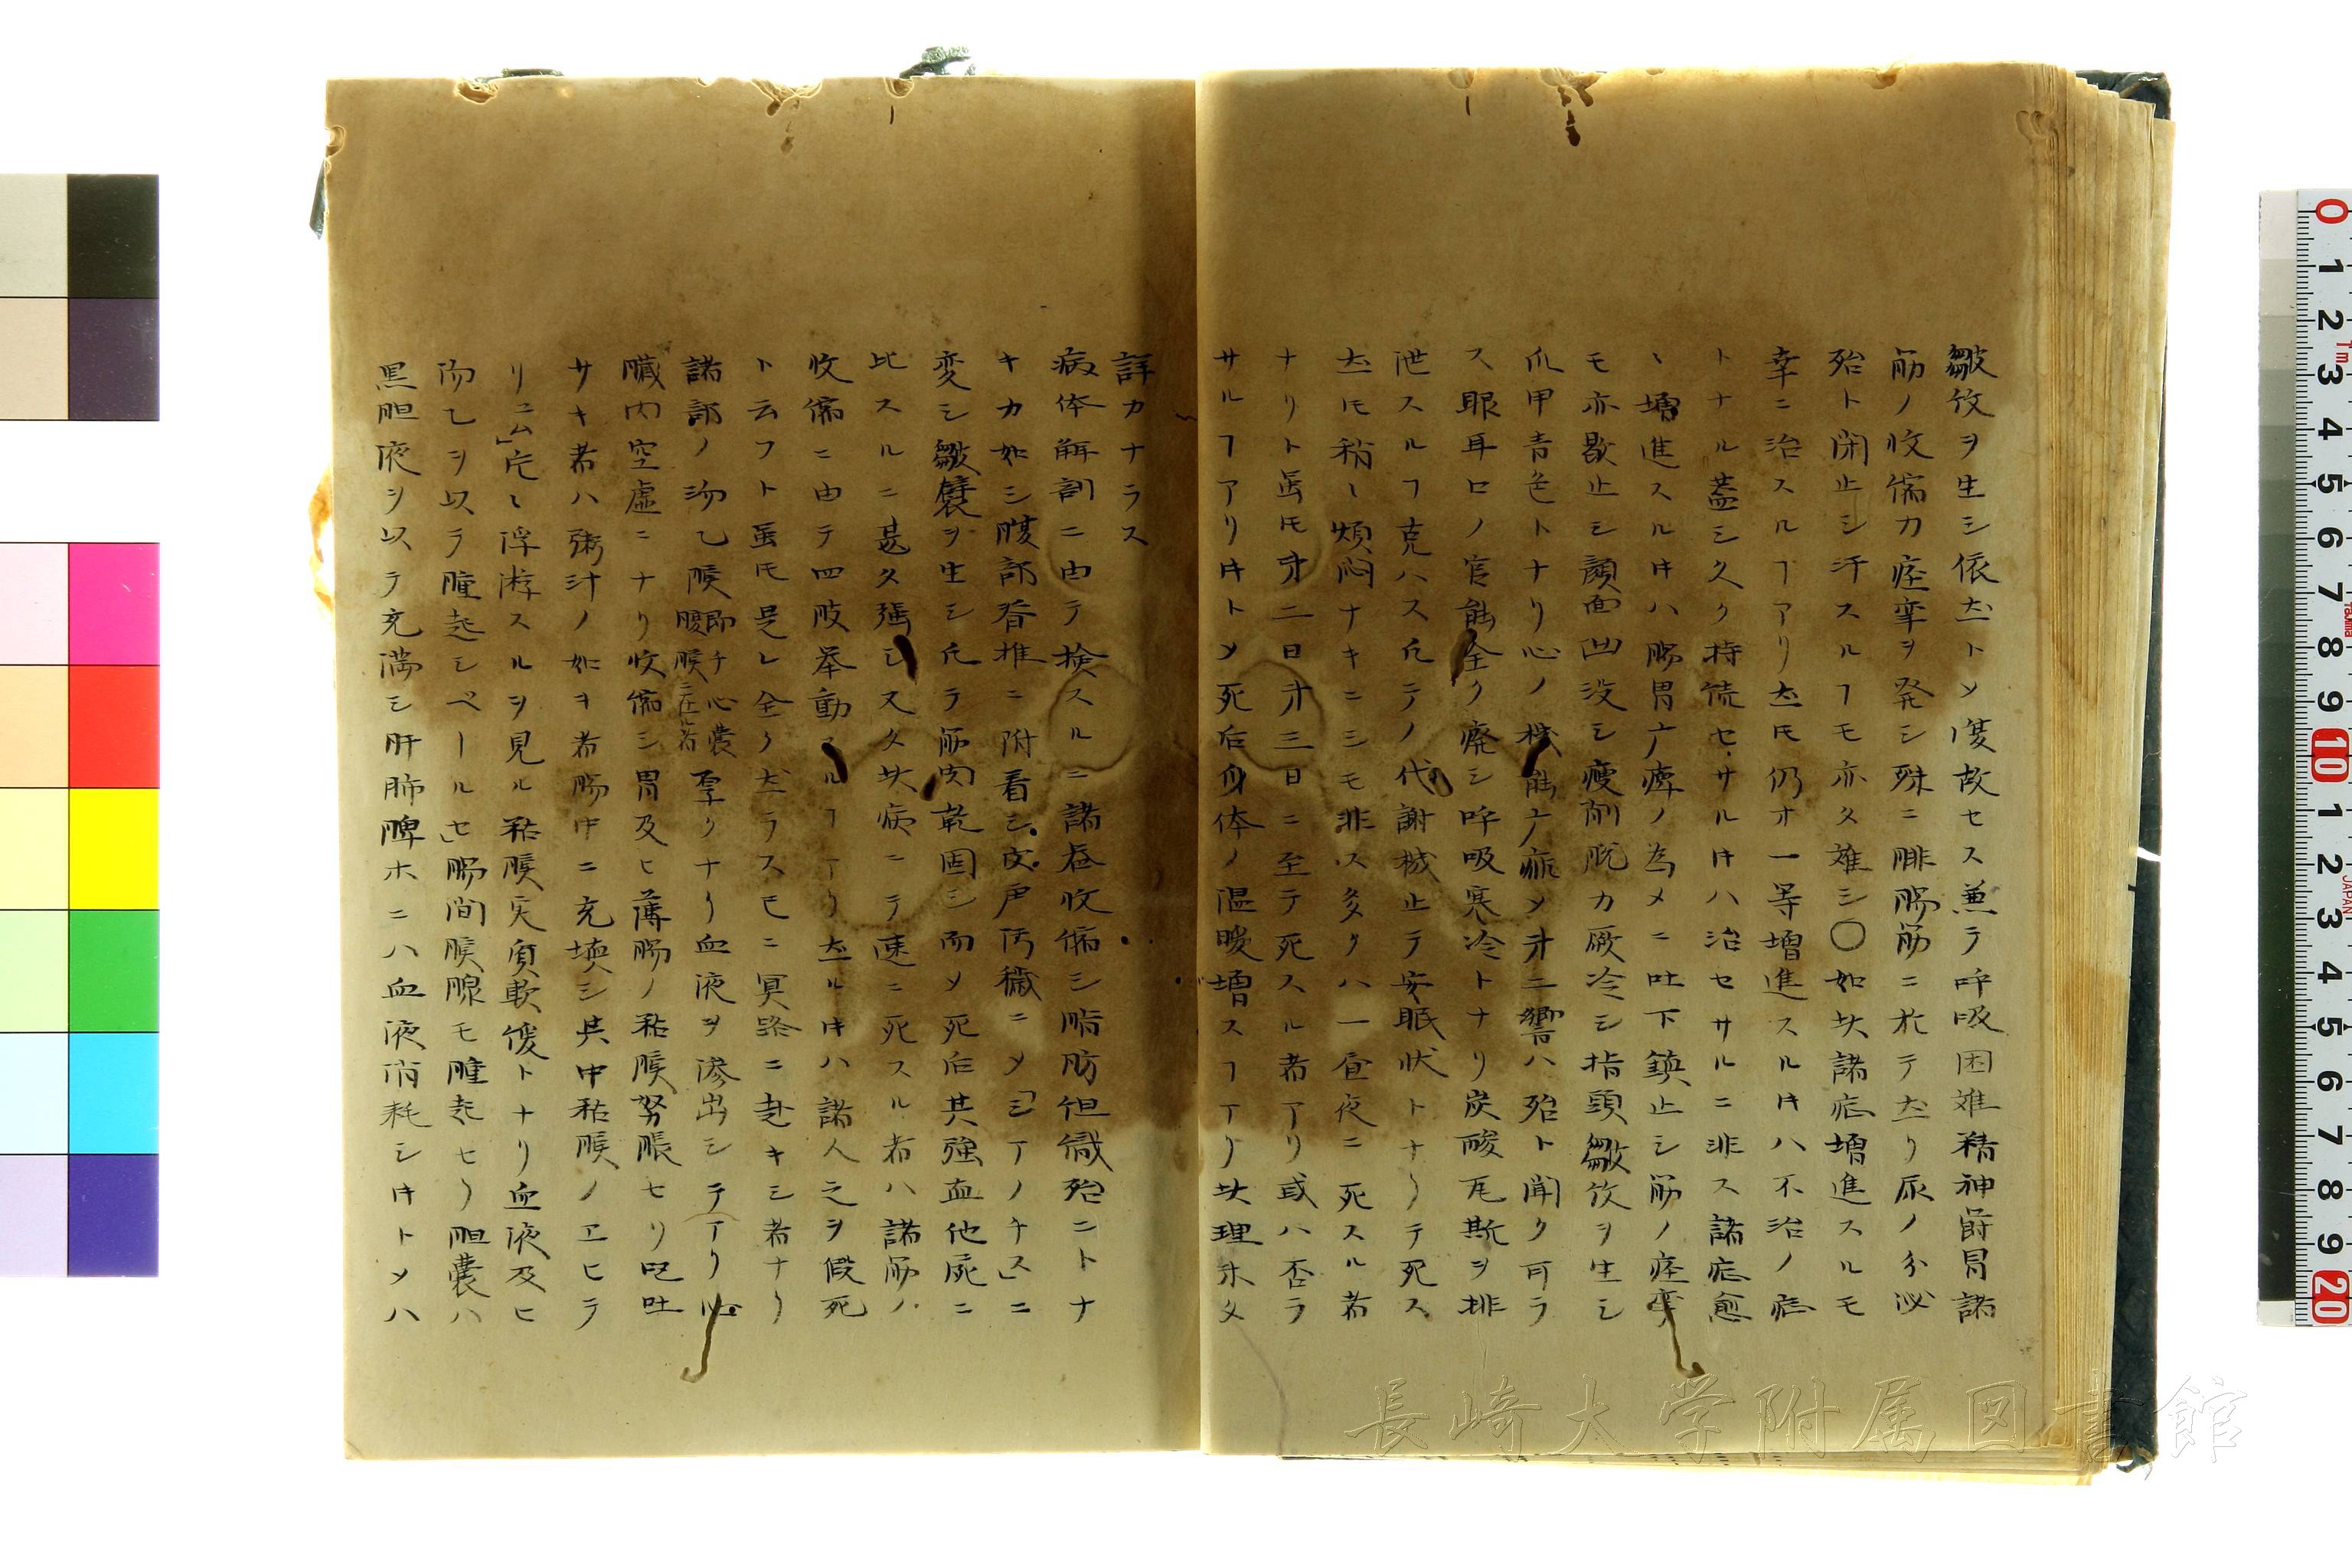 皺攸ヲ生シ依𪜈トメ復故セス兼テ呼吸困難精神欝冒諸
筋ノ收縮力痙攣ヲ発シ殊ニ腓腸筋ニ於テ𪜈リ尿ノ分泌
殆ト閉止シ汗スルヿモ亦タ難シ〇如此諸症増進スルモ
幸ニ治スルヿアリ𪜈モ仍オ一等増進スルキハ不治ノ症
トナル蓋シ久ク持続セサルキハ治セサルニ非ス諸症愈
、増進スルキハ腸胃广痺ノ為メニ吐下鎮止シ筋ノ痙攣
モ亦歇止シ顔面凹没シ痩削脱力厥冷シ指頭皺攸ヲ生シ
爪甲青色トナリ心ノ機能广痲メ第二響ハ殆ト聞ク可ラ
ス眼耳口ノ官能全ク廃シ呼吸寒冷トナリ炭酸瓦斯ヲ排
泄スルヿ克ハス凢テノ代謝機止テ安眠状トナリテ死ス
𪜈モ稍々煩悶ナキニシモ非ス多クハ一昼夜ニ死スル者
ナリト虽𪜈第二日第三日ニ至テ死スル者アリ或ハ否ラ
サルヿアリキトメ死后身体ノ温暖増スヿアリ此理未タ
詳カナラス
病体解剖ニ由テ検スルニ諸器收縮シ脂肪但織殆ニトナ
キカ如シ腹部脊推ニ附着シ皮戸汚穢ニメ「シアノチス」ニ
変シ皺襞ヲ生シ凢テ筋肉乾固シ而メ死后其強直他屍ニ
比スルニ甚タ强シ又タ此病ニテ速ニ死スル者ハ諸筋ノ
收縮ニ由テ四肢挙動スルヿアリ𪜈ルキハ諸人之ヲ假死
ト云フト虽𪜈是レ全ク𪜈ラス已ニ冥路ニ赴キシ者ナリ
諸部ノ沕乙膜即チ心嚢腹膜ニ在者厚クナリ血液ヲ滲出シテアリ心
臓内空虚ニナリ收縮シ胃及ヒ薄腸ノ粘膜努脹セリ呕吐
サキ者ハ粥汁ノ如ヲ者腸中ニ充填シ其中粘膜ノエヒテ
リユム」尤モ浮游スルヲ見ル粘膜実質軟優トナリ血液及ヒ
沕乙ヲ以テ腫起シペールセ」腸間膜腺モ腫起セリ胆嚢ハ
黒胆液ヲ以テ充満シ肝肺脾ホニハ血液消耗シキトメハ
長崎大学附属図書館
0 1 2 3 4 5 6 7 8 9 10 1 2 3 4 5 6 7 8 9 20
JAPAN